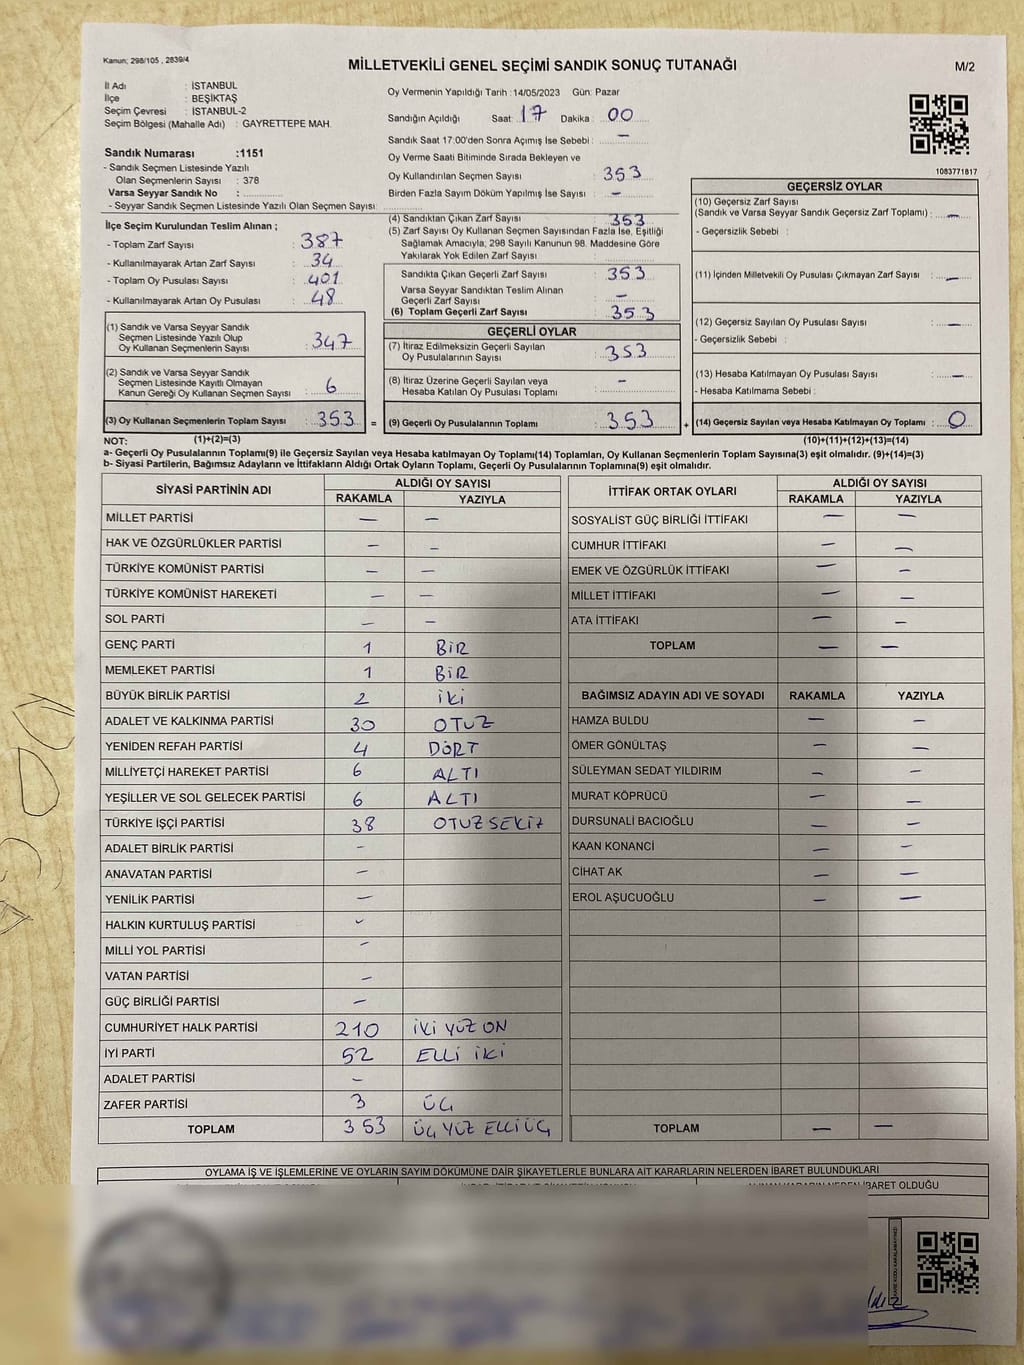 Kanun; 298/105 , 2839/4
MİLLETVEKİLİ GENEL SEÇİMİ SANDIK SONUÇ TUTANAĞI
M/2
İl Adı : İSTANBUL
İlçe : BEŞİKTAŞ
Seçim Çevresi : İSTANBUL-2
Seçim Bölgesi (Mahalle Adı) : GAYRETTEPE MAH.
Sandık Numarası :1151
- Sandık Seçmen Listesinde Yazılı
Olan Seçmenlerin Sayısı : 378
Varsa Seyyar Sandık No :
- Seyyar Sandık Seçmen Listesinde Yazılı Olan Seçmen Sayısı:
Oy Vermenin Yapıldığı Tarih :14/05/2023 Gün: Pazar
Sandığın Açıldığı Saat: 17 Dakika : 00
Sandık Saat 17:00'den Sonra Açımış İse Sebebi : —
Oy Verme Saati Bitiminde Sırada Bekleyen ve
Oy Kullandırılan Seçmen Sayısı : 353
Birden Fazla Sayım Döküm Yapılmış İse Sayısı : —
1083771817
İlçe Seçim Kurulundan Teslim Alınan ;
- Toplam Zarf Sayısı : 387
- Kullanılmayarak Artan Zarf Sayısı : 34
- Toplam Oy Pusulası Sayısı : 401
- Kullanılmayarak Artan Oy Pusulası : 48
(1) Sandık ve Varsa Seyyar Sandık
Seçmen Listesinde Yazılı Olup
Oy Kullanan Seçmenlerin Sayısı : 347
(2) Sandık ve Varsa Seyyar Sandık
Seçmen Listesinde Kayıtlı Olmayan
Kanun Gereği Oy Kullanan Seçmen Sayısı : 6
(3) Oy Kullanan Seçmenlerin Toplam Sayısı : 353 =
(4) Sandıktan Çıkan Zarf Sayısı : 353
(5) Zarf Sayısı Oy Kullanan Seçmen Sayısından Fazla İse, Eşitliği
Sağlamak Amacıyla; 298 Sayılı Kanunun 98. Maddesine Göre
Yakılarak Yok Edilen Zarf Sayısı :
Sandıkta Çıkan Geçerli Zarf Sayısı : 353
Varsa Seyyar Sandıktan Teslim Alınan
Geçerli Zarf Sayısı : —
(6) Toplam Geçerli Zarf Sayısı : 353
GEÇERLİ OYLAR
(7) İtiraz Edilmeksizin Geçerli Sayılan
Oy Pusulalarının Sayısı : 353
(8) İtiraz Üzerine Geçerli Sayılan veya
Hesaba Katılan Oy Pusulası Toplamı : —
(9) Geçerli Oy Pusulalarının Toplamı : 353 +
GEÇERSİZ OYLAR
(10) Geçersiz Zarf Sayısı
(Sandık ve Varsa Seyyar Sandık Geçersiz Zarf Toplamı) : —
- Geçersizlik Sebebi :
(11) İçinden Milletvekili Oy Pusulası Çıkmayan Zarf Sayısı : —
(12) Geçersiz Sayılan Oy Pusulası Sayısı : —
- Geçersizlik Sebebi :
(13) Hesaba Katılmayan Oy Pusulası Sayısı : —
- Hesaba Katılmama Sebebi :
(14) Geçersiz Sayılan veya Hesaba Katılmayan Oy Toplamı : 0
NOT: (1)+(2)=(3) (10)+(11)+(12)+(13)=(14)
a- Geçerli Oy Pusulalarının Toplamı(9) ile Geçersiz Sayılan veya Hesaba katılmayan Oy Toplamı(14) Toplamları, Oy Kullanan Seçmenlerin Toplam Sayısına(3) eşit olmalıdır. (9)+(14)=(3)
b- Siyasi Partilerin, Bağımsız Adayların ve İttifakların Aldığı Ortak Oyların Toplamı, Geçerli Oy Pusulalarının Toplamına(9) eşit olmalıdır.
SİYASİ PARTİNİN ADI ALDIĞI OY SAYISI
RAKAMLA YAZIYLA
MİLLET PARTİSİ — —
HAK VE ÖZGÜRLÜKLER PARTİSİ — —
TÜRKİYE KOMÜNİST PARTİSİ — —
TÜRKİYE KOMÜNİST HAREKETİ — —
SOL PARTİ — —
GENÇ PARTİ 1 BİR
MEMLEKET PARTİSİ 1 BİR
BÜYÜK BİRLİK PARTİSİ 2 İKİ
ADALET VE KALKINMA PARTİSİ 30 OTUZ
YENİDEN REFAH PARTİSİ 4 DÖRT
MİLLİYETÇİ HAREKET PARTİSİ 6 ALTI
YEŞİLLER VE SOL GELECEK PARTİSİ 6 ALTI
TÜRKİYE İŞÇİ PARTİSİ 38 OTUZ SEKİZ
ADALET BİRLİK PARTİSİ —
ANAVATAN PARTİSİ —
YENİLİK PARTİSİ —
HALKIN KURTULUŞ PARTİSİ —
MİLLİ YOL PARTİSİ —
VATAN PARTİSİ —
GÜÇ BİRLİĞİ PARTİSİ —
CUMHURİYET HALK PARTİSİ 210 İKİ YÜZ ON
İYİ PARTİ 52 ELLİ İKİ
ADALET PARTİSİ —
ZAFER PARTİSİ 3 ÜÇ
TOPLAM 353 ÜÇ YÜZ ELLİ ÜÇ
İTTİFAK ORTAK OYLARI ALDIĞI OY SAYISI
RAKAMLA YAZIYLA
SOSYALİST GÜÇ BİRLİĞİ İTTİFAKI — —
CUMHUR İTTİFAKI — —
EMEK VE ÖZGÜRLÜK İTTİFAKI — —
MİLLET İTTİFAKI — —
ATA İTTİFAKI — —
TOPLAM — —
BAĞIMSIZ ADAYIN ADI VE SOYADI RAKAMLA YAZIYLA
HAMZA BULDU — —
ÖMER GÖNÜLTAŞ — —
SÜLEYMAN SEDAT YILDIRIM — —
MURAT KÖPRÜCÜ — —
DURSUNALİ BACIOĞLU — —
KAAN KONANCİ — —
CİHAT AK — —
EROL AŞUCUOĞLU — —
TOPLAM — —
OYLAMA İŞ VE İŞLEMLERİNE VE OYLARIN SAYIM DÖKÜMÜNE DAİR ŞİKAYETLERLE BUNLARA AİT KARARLARIN NELERDEN İBARET BULUNDUKLARI
İBARET OLDUĞU